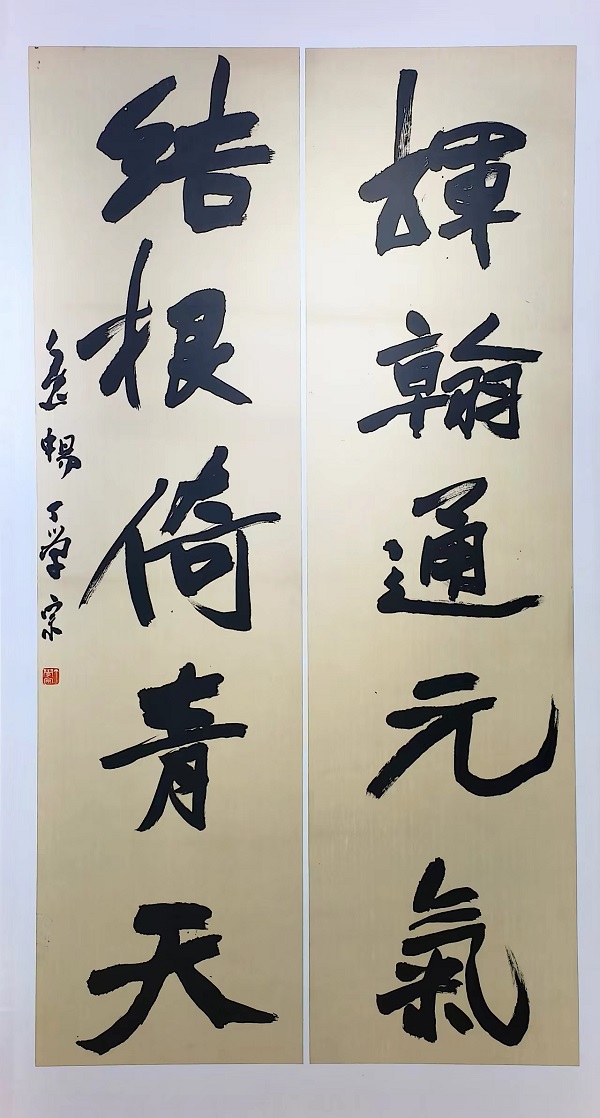 揮翰通元氣
結根倚青天
逸暢丁学宗